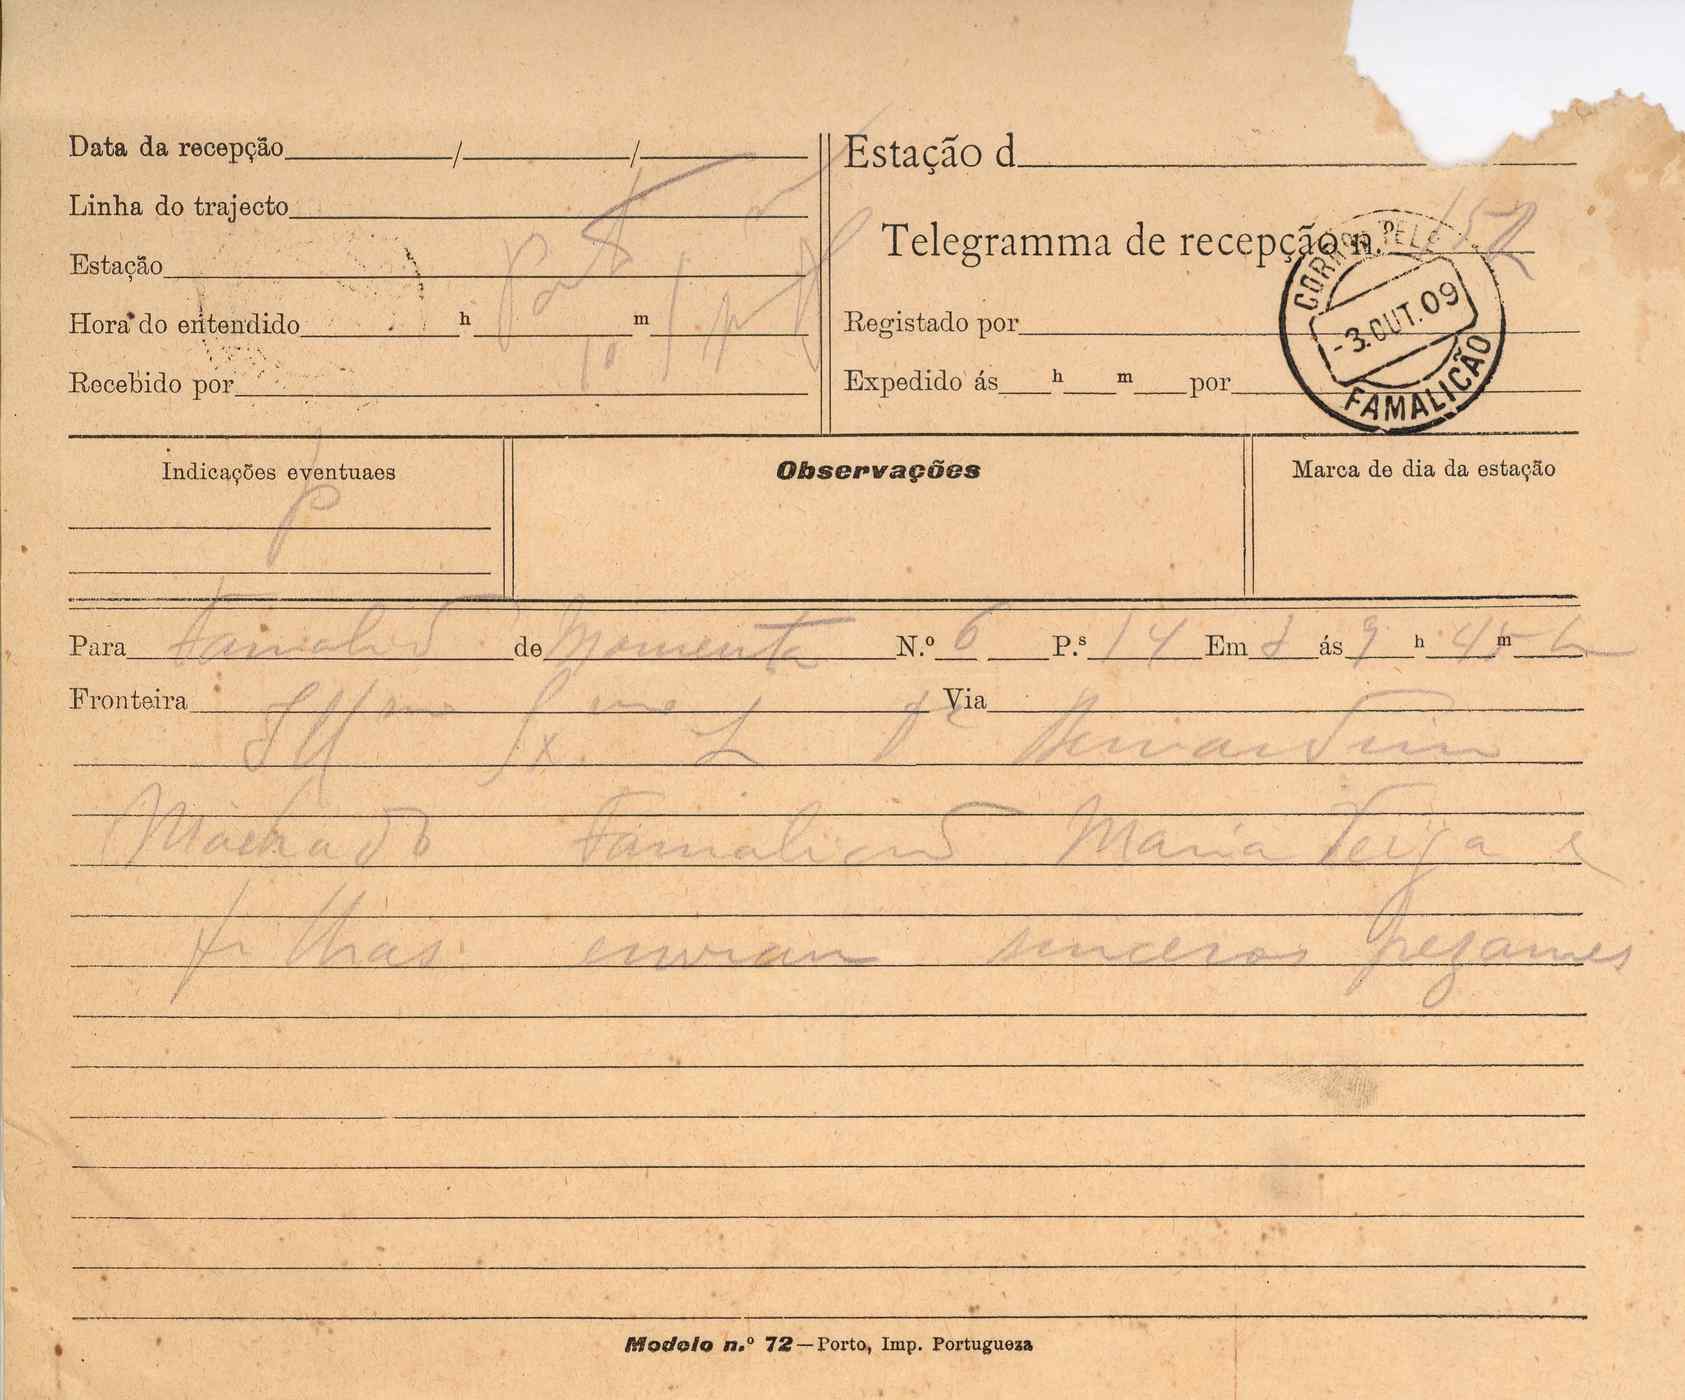 Data da recepção / /
Linha do trajecto
Estação
Hora do entendido h m
Recebido por
Estação d
Telegramma de recepção n.º 152
Registado por
Expedido ás h m por
CORREIO TELEG
-3.OUT.09
FAMALICÃO
Indicações eventuaes
p
Observações
Marca de dia da estação
Para Famalicão de N.º 6 P.s 14 Em 3 ás 9 h 45 m
Fronteira Via
Illmo Ex mo Dr Bernardino
Machado Famalicão Maria Veiga e
filhas enviam sinceros pezames
Modelo n.º 72—Porto, Imp. Portugueza